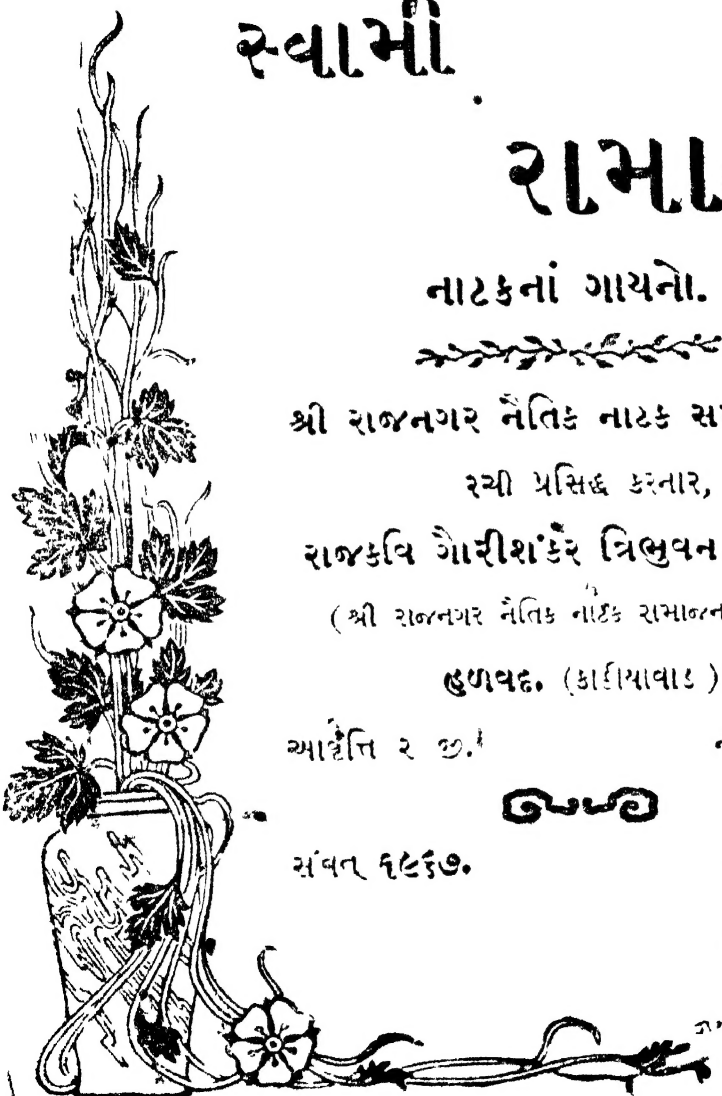 સ્વામી
રામા
નાટકનાં ગાયનો.
શ્રી રાજનગર નૈતિક નાટક સ
રચી પ્રસિદ્ધ કરનાર,
રાજકવિ ગૌરીશંકર ત્રિભુવન
(શ્રી રાજનગર નૈતિક નાટક રામાજન
હળવદ. (કાઠીયાવાડ)
આવૃત્તિ ૨ જી.
સંવત્ ૧૯૬૭.